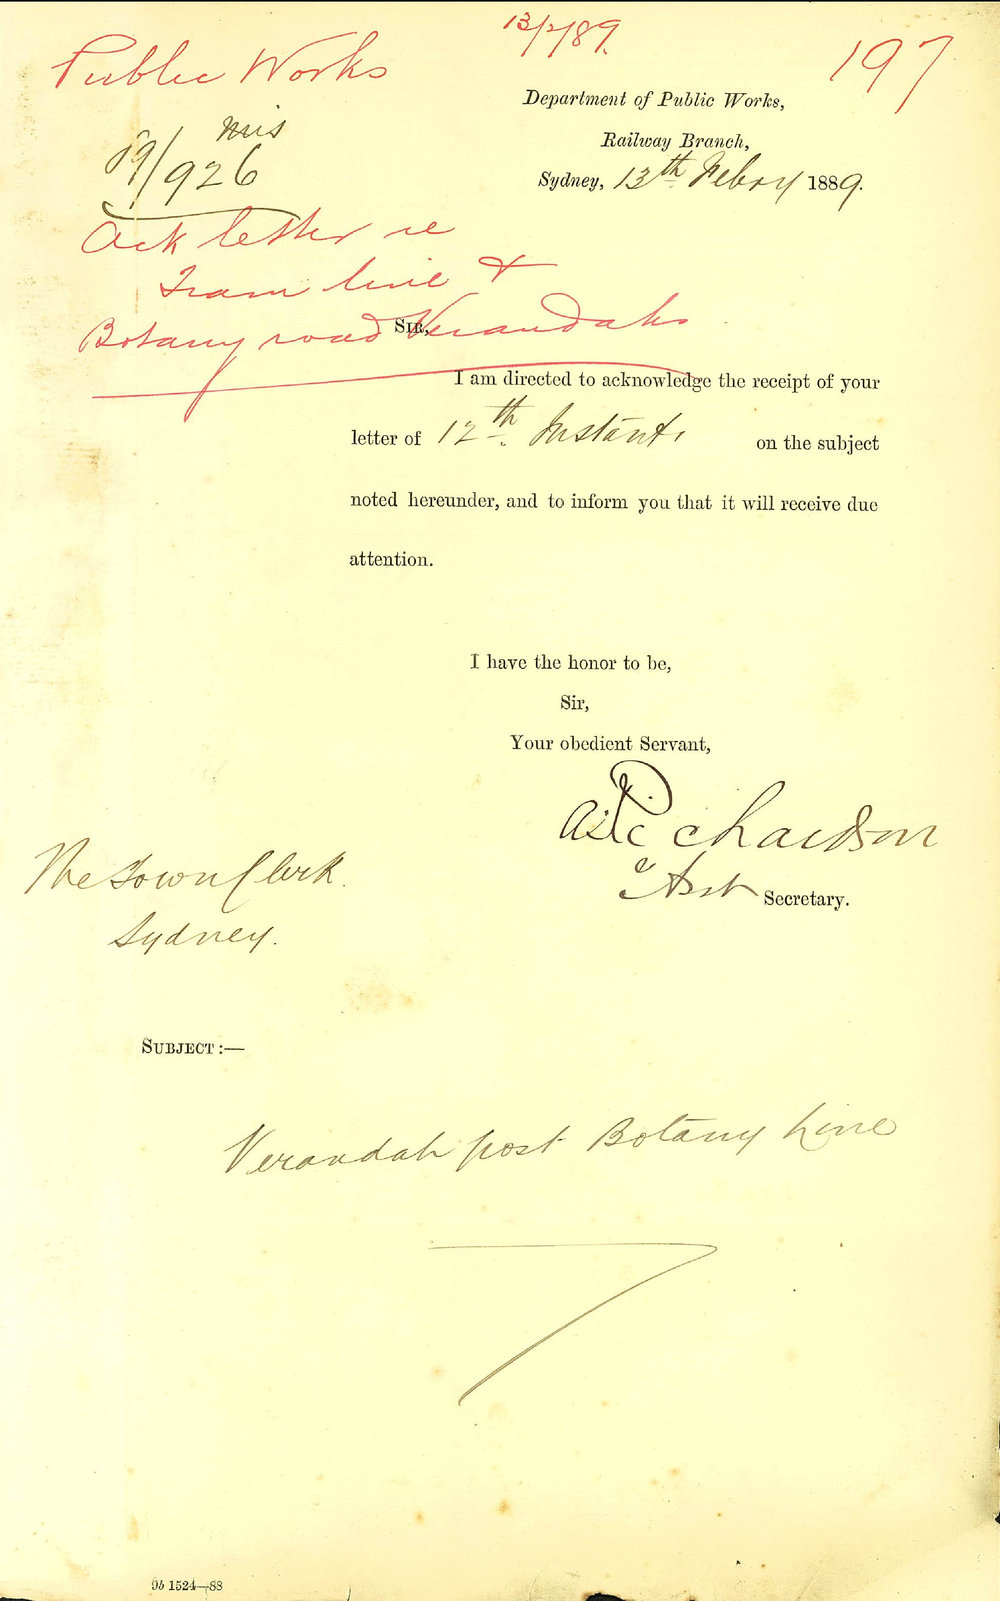 13/2/89.
Public Works
197
Department of Public Works,
Railway Branch,
Mis
89/926
Sydney, 13th Febry 1889.
Ack letter re
Tram line &
Botany road Verandahs
SIR,
I am directed to acknowledge the receipt of your
letter of 12th Instant, on the subject
noted hereunder, and to inform you that it will receive due
attention.
I have the honor to be,
Sir,
Your obedient Servant,
Richardson
Asst Secretary.
The Town Clerk.
Sydney.
SUBJECT :—
Verandah post Botany Line
9b 1524—88